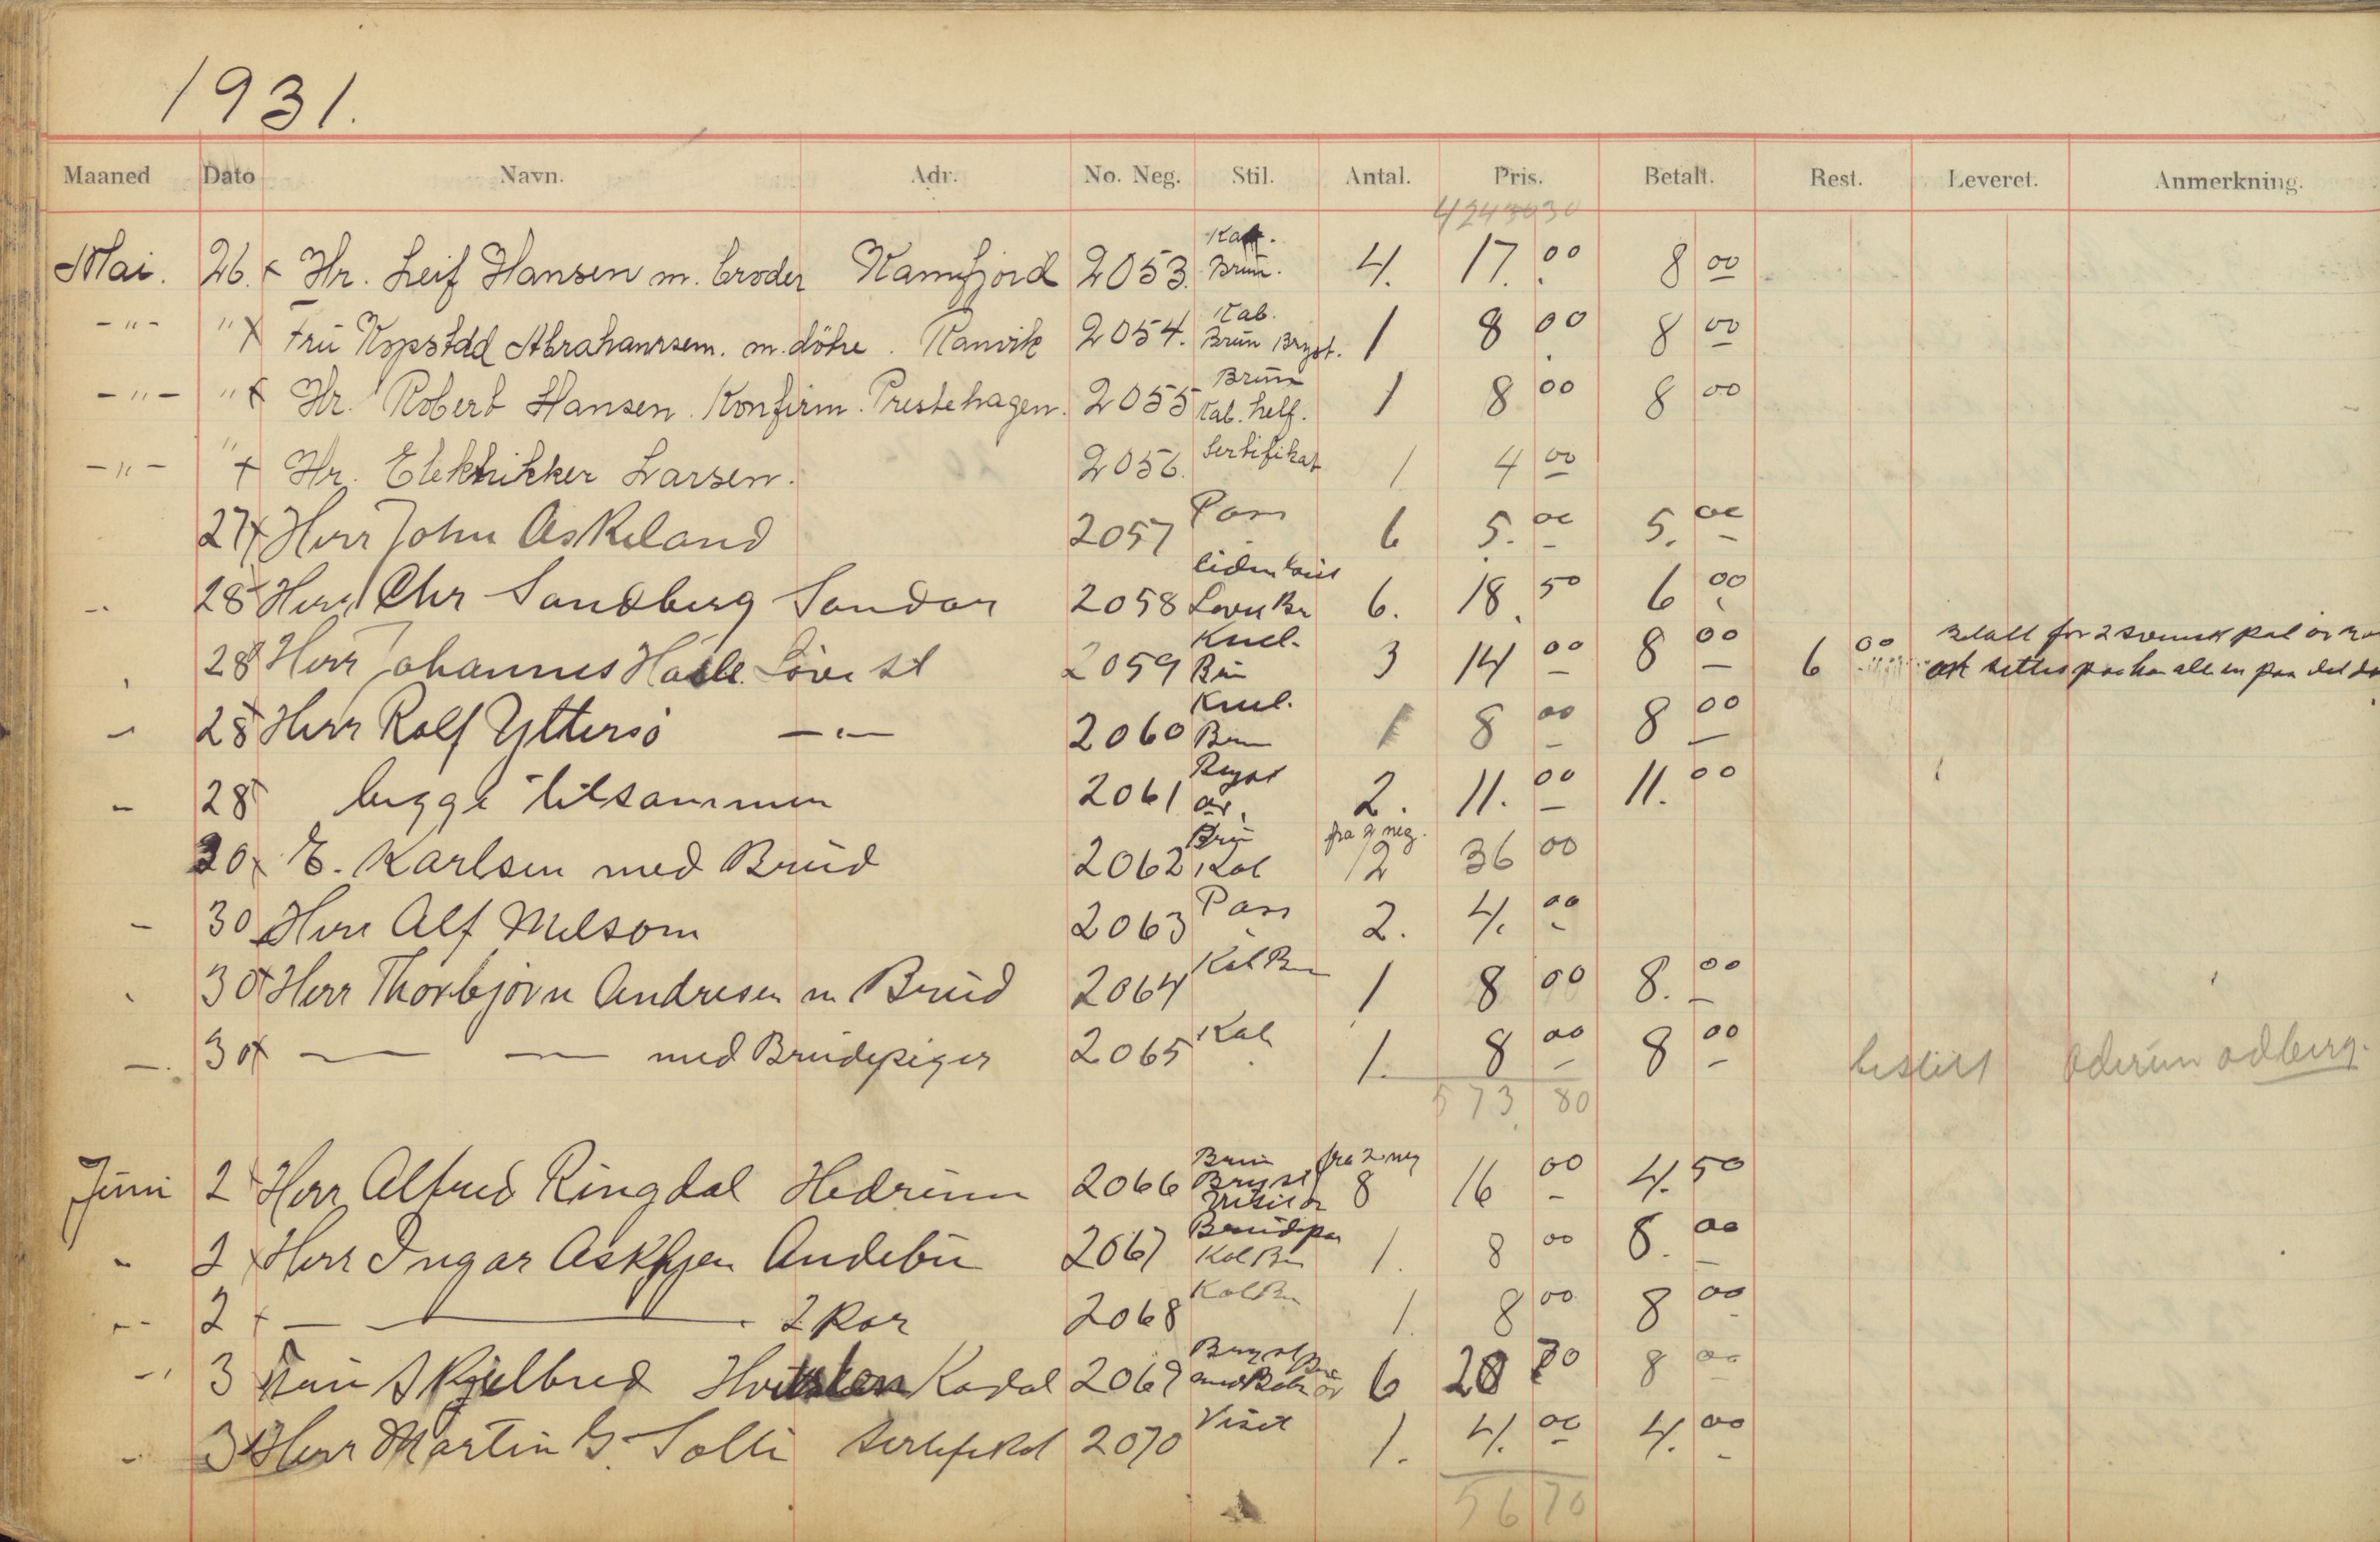 1931.
Maaned Dato Navn. Adr. No. Neg. Stil. Antal. Pris. Betalt. Rest. Leveret. Anmerkning.
Kab.
Mai. 26. x Hr. Leif Hansen m. broder Kamfjord 2053. Brun. 4. 17.00 8 00
Kab.
-"- " x Fru Kopstad Abrahamsem. m. döhre. Ranvik 2054. Brun Bryst. 1 8 00 8 00
Brun
-"- " x Hr. Robert Hansen. Konfirm. Prestehagen. 2055 Kab. helf. 1 8 00 8 00
-"- " x Hr. Elektrikker Larsen. 2056. Sertifikat 1 4 00
27 x Herr John Askeland 2057 Pass 6 5.00 5.00
28 Herr Chr Sandberg Sandar 2058 6. 18.50 6 00
Knel.
28 Herr Johannes Hasle Löve st 2059 Brun 3 14 00 8 00 6 00
Knel.
28 Herr Rolf Yttersö -"- 2060 Brun 1 8 00 8 00
Bryst
- 28 begge tilsammen 2061 2. 11.00 11.00
Brun fra 2 neg.
30 x E. Karlsen med Brud 2062 Kab 12 36 00
- 30 Herr Alf Melsom 2063 Pass 2. 4.00
30 x Herr Thorbjörn Andresen m Brud 2064 Kab Brun 1 8 00 8.00
-. 30 x — — med Brudepiger 2065 Kab 1. 8 00 8 00 bestilt
573.80
Brun fra 2 neg
Juni 2 Herr Alfred Ringdal Hedrum 2066 Bryst 8 16 00 4.50
Visit
Brudepar
" 2 x Herr Ingar Askhjem Andebu 2067 Kab Brun 1. 8 00 8.00
-- 2 x — — 2 par 2068 Kab Brun 1. 8 00 8 00
Bryst
-" 3 Fru Skjelbred Kodal 2069 6 20 8 00
- 3 x Herr Martin G. Solli Sertifikat 2070 Visit 1. 4.00 4.00
56 70